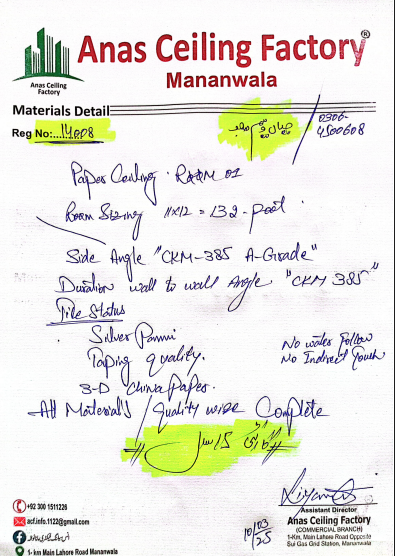 Anas Ceiling Factory®
Mananwala
Anas Ceiling
Factory
Materials Detail
Reg No:....14008
میاں
0306-
4500608
Paper Ceiling. ROOM 01
Room Sizing 11x12 = 132-foot.
Side Angle "CKM-385 A-Grade"
Duration wall to wall Angle "CKM 385"
Tile Status
Silver Panni
Taping quality.
3-D China Paper.
No water Follow
No Indirect Touch
All Material's / quality wise Complete
گارنٹی 15 سال
+92 300 1511226
acf.info.1122@gmail.com
1- km Main Lahore Road Mananwala
10/03
25
Assistant Director
Anas Ceiling Factory
(COMMERCIAL BRANCH)
1-Km, Main Lahore Road Opposite
Sui Gas Grid Station, Mananwala